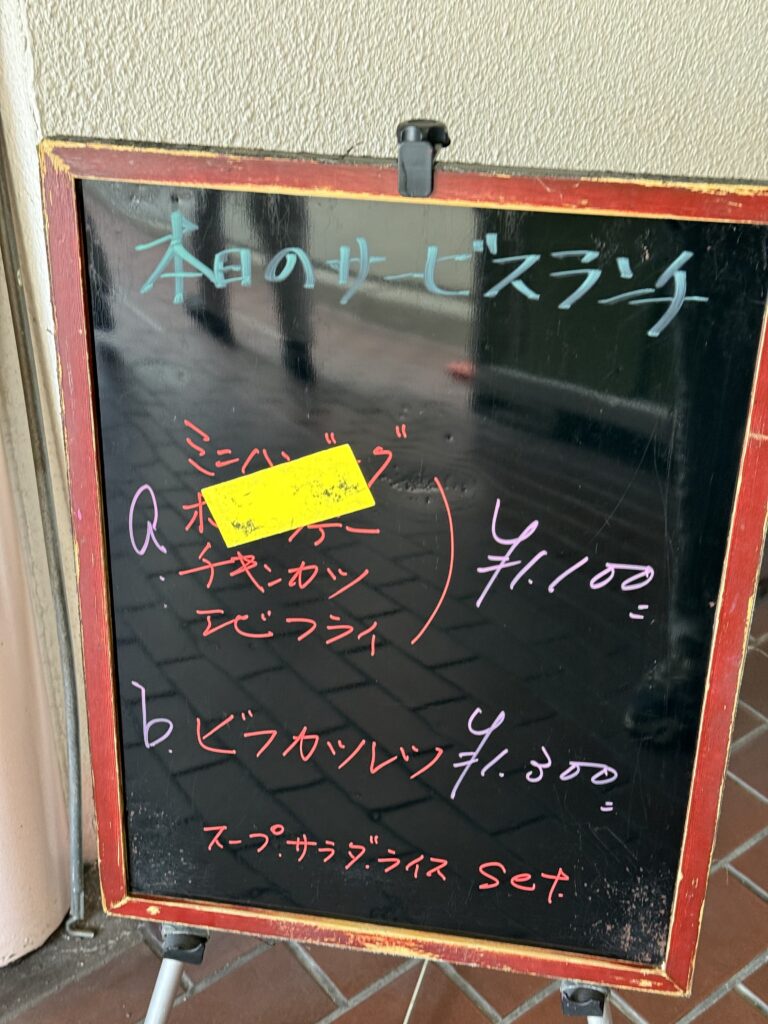 本日のサービスランチ
a.
チキンカツ
エビフライ
¥1.100
b.ビフカツレツ ¥1.300
スープ.サラダ.ライス set